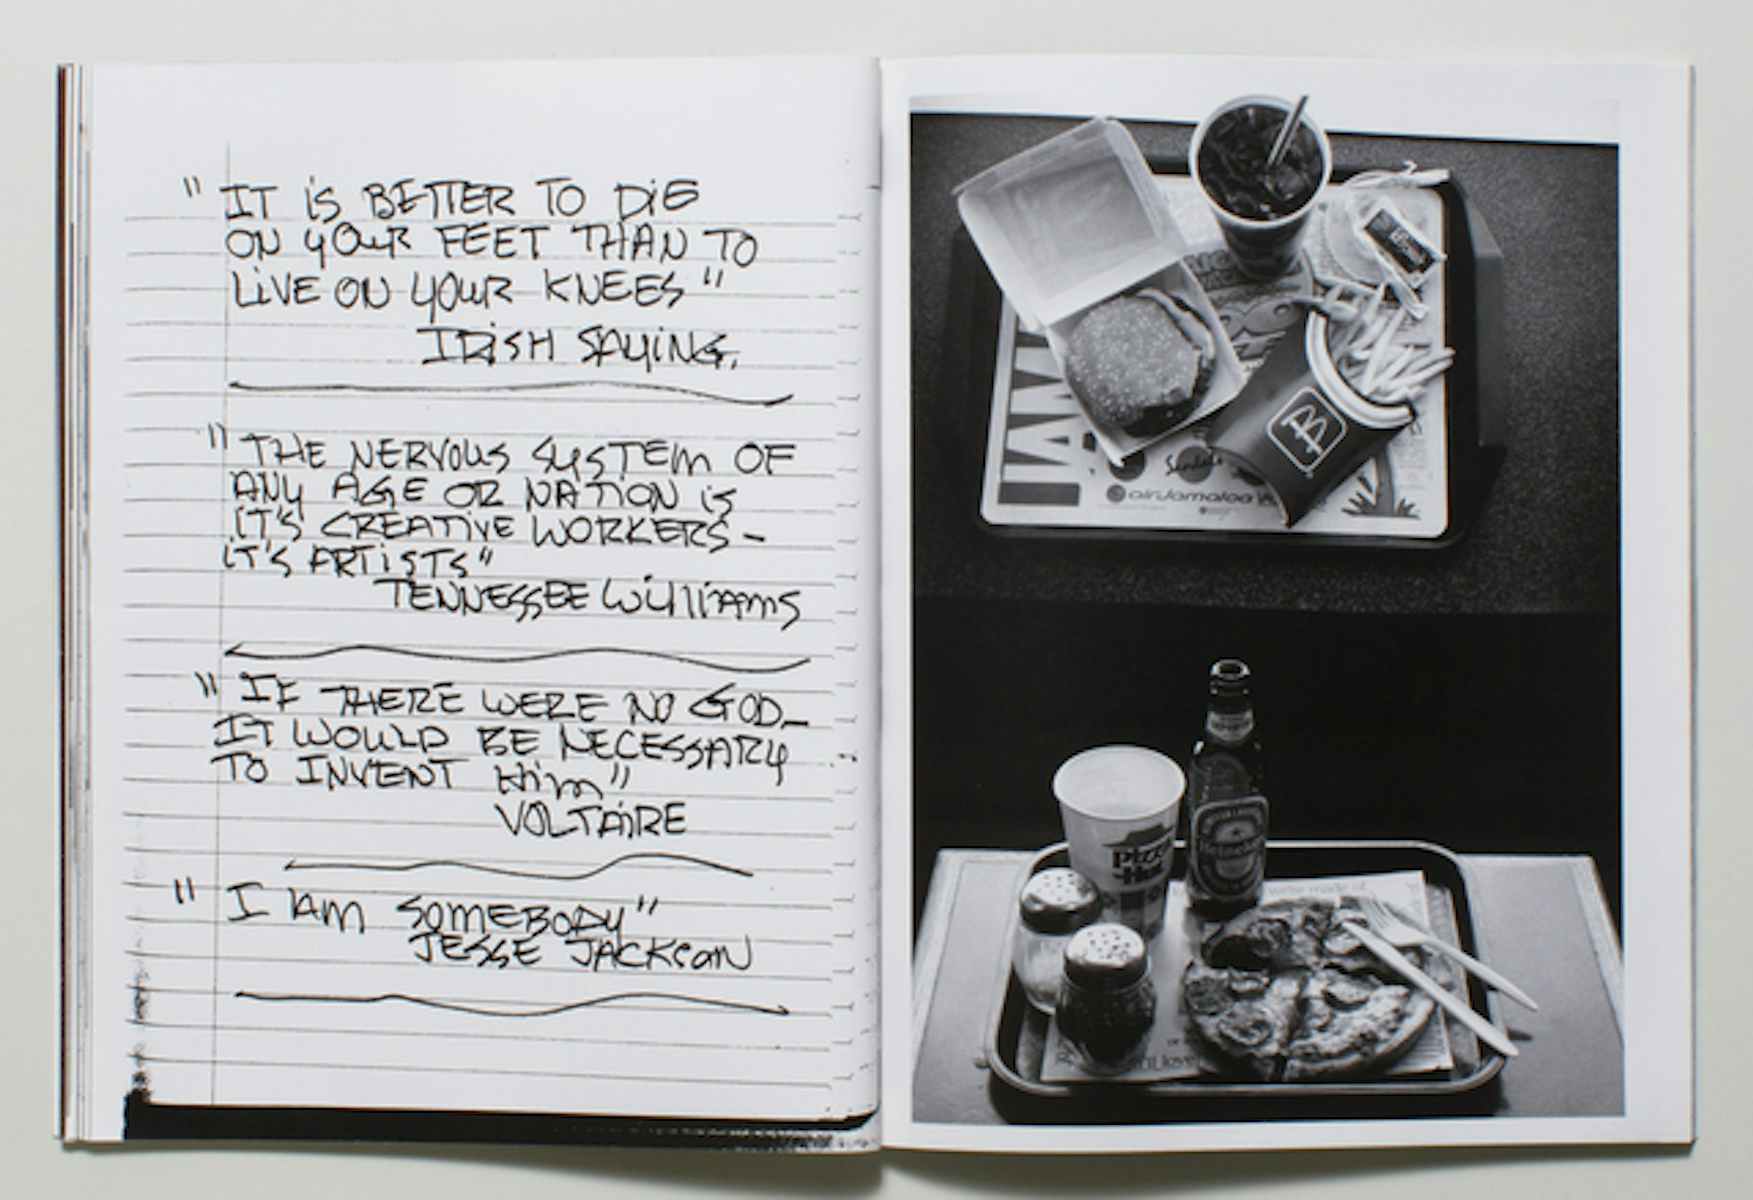 " IT IS BETTER TO DIE
ON YOUR FEET THAN TO
LIVE ON YOUR KNEES "
IRISH SAYING.
" THE NERVOUS SYSTEM OF
ANY AGE OR NATION IS
IT'S CREATIVE WORKERS -
IT'S ARTISTS "
TENNESSEE WILLIAMS
" IF THERE WERE NO GOD-
IT WOULD BE NECESSARY
TO INVENT HIM "
VOLTAIRE
" I AM SOMEBODY "
JESSE JACKSON
JAM
Sandals
airJamaica
Pizza
Hut
Heineken
we're made of